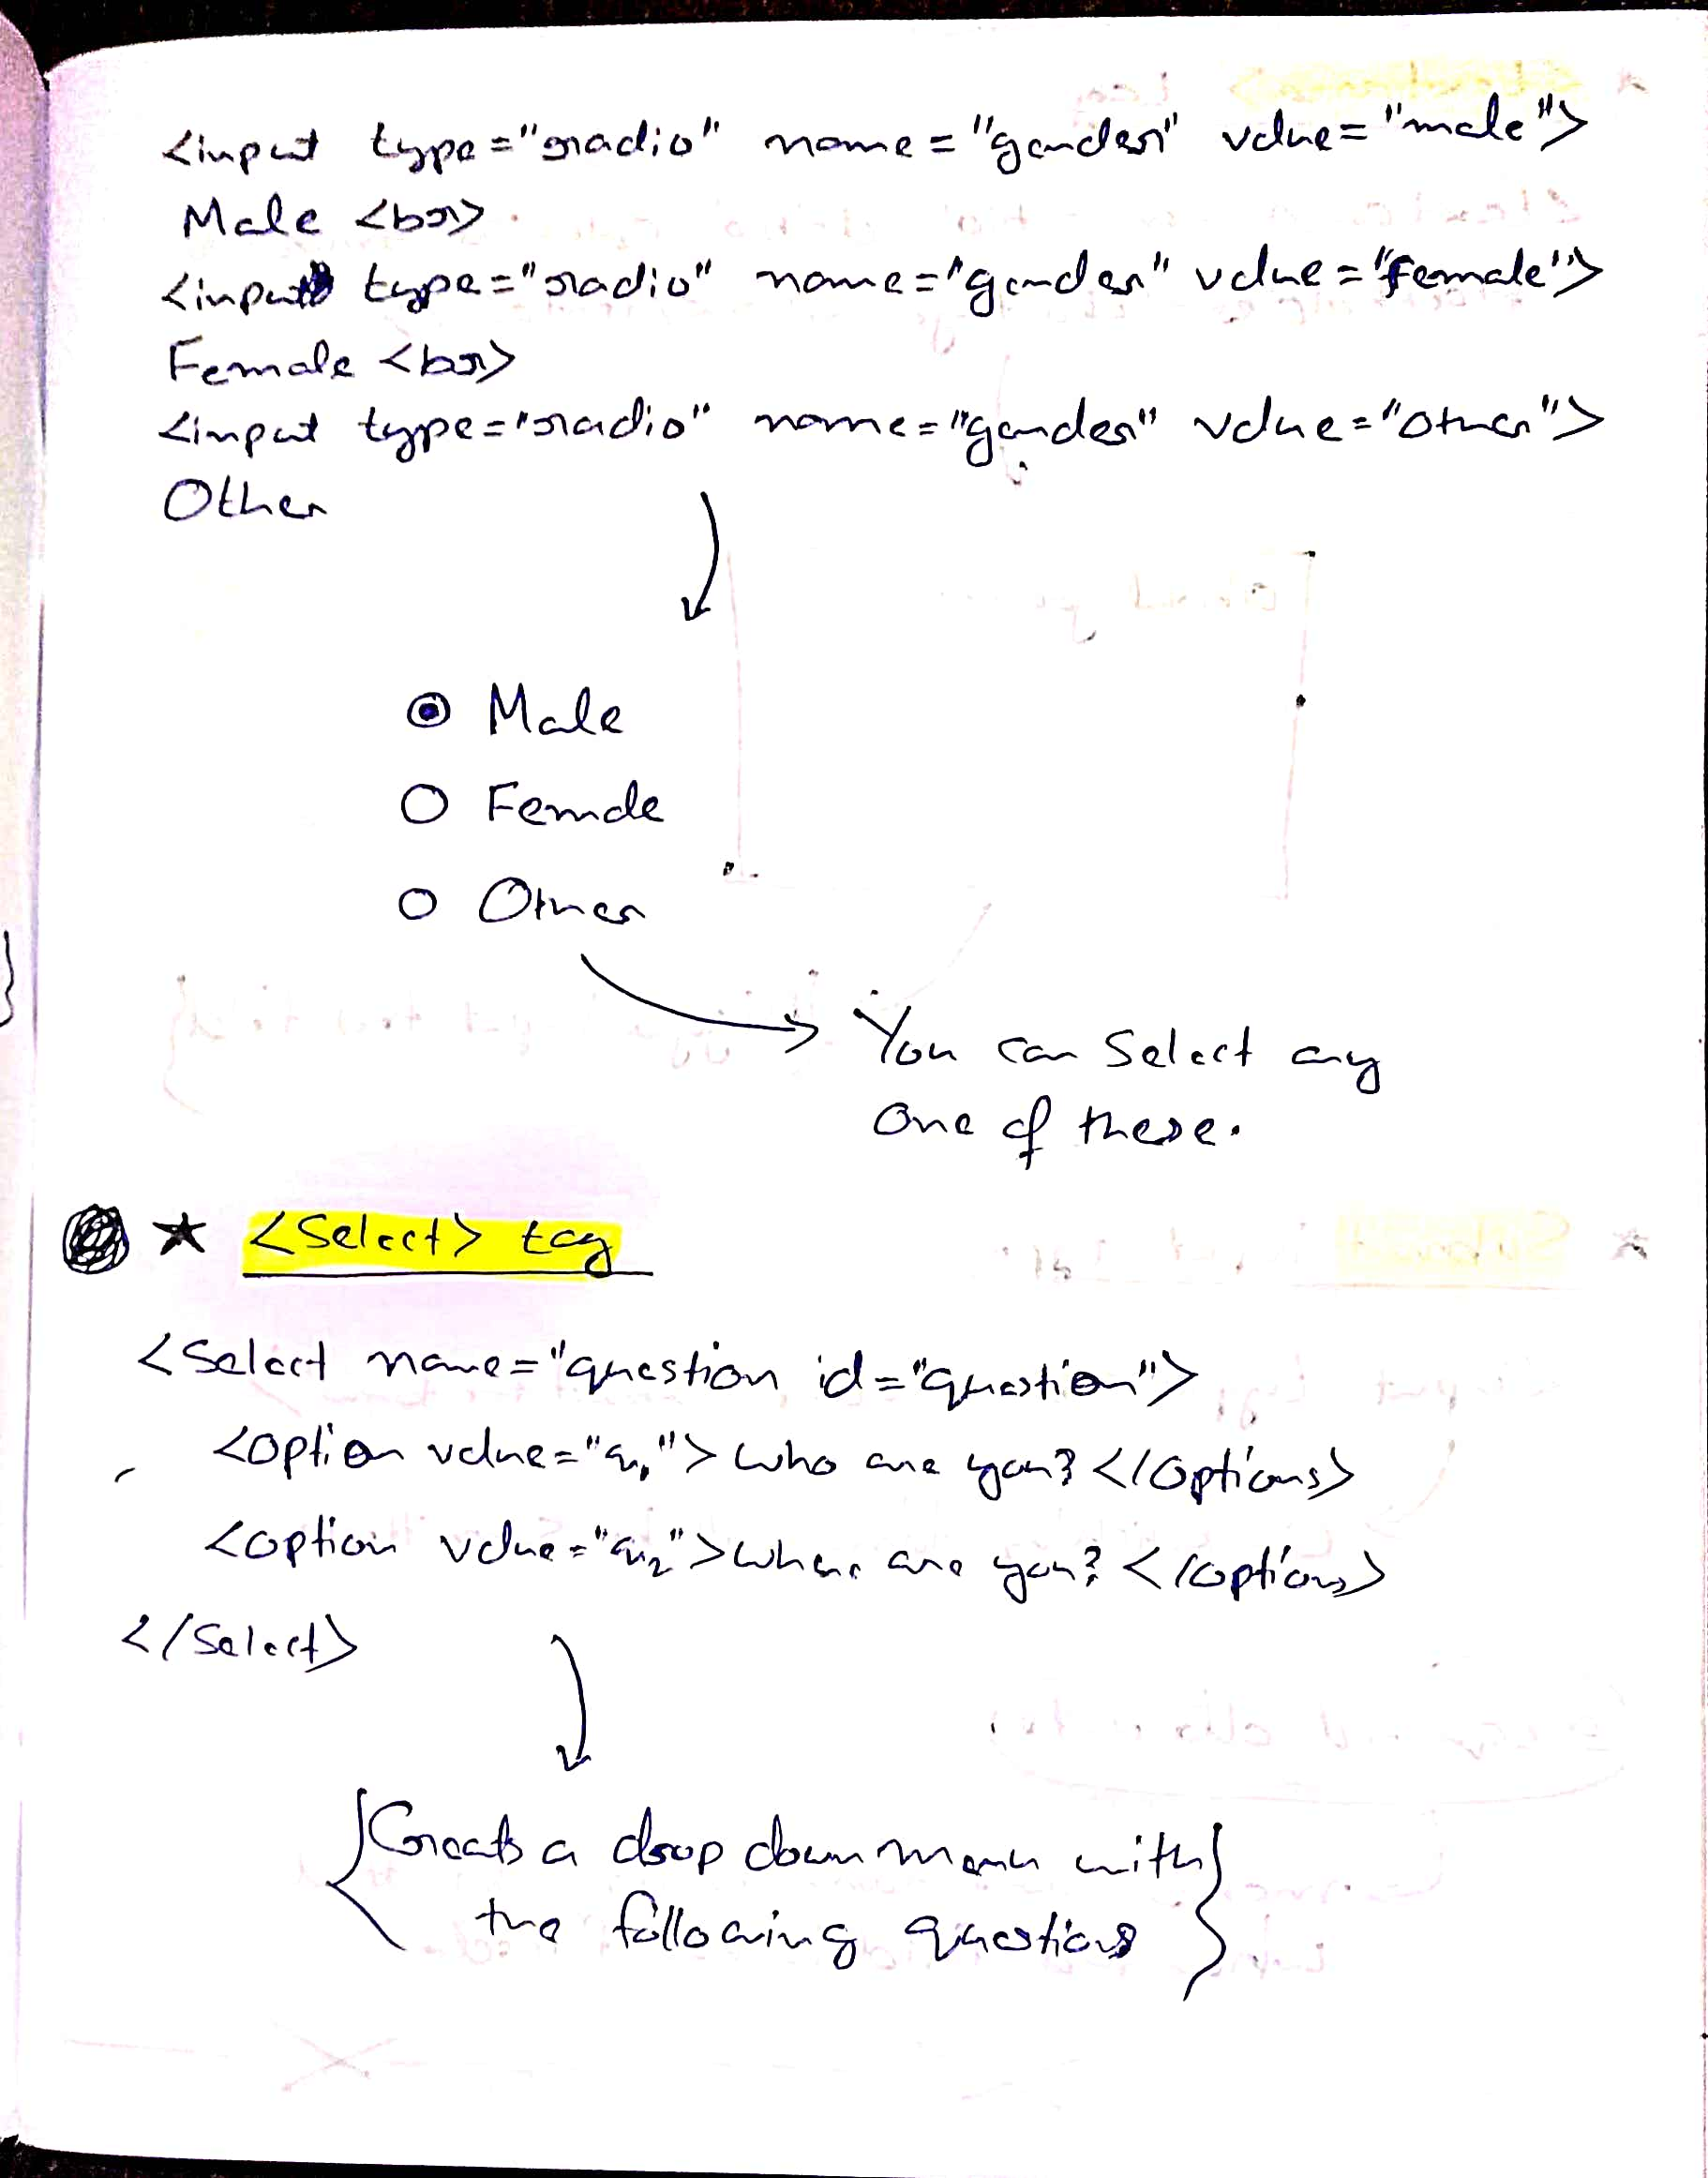 <input type="radio" name="gender" value="male">
Male <br>
<input type="radio" name="gender" value="female">
Female <br>
<input type="radio" name="gender" value="other">
Other
Male
Female
Other
You can select any
one of these.
<Select> tag
<Select name="question id="question">
<option value="q1"> Who are you? </options>
<option value="q2">Where are you? </options>
</Select>
{Creats a drop down menu with
the following questions}